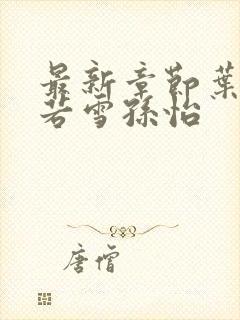 最新章节葉
若雪孫怡
唐僧